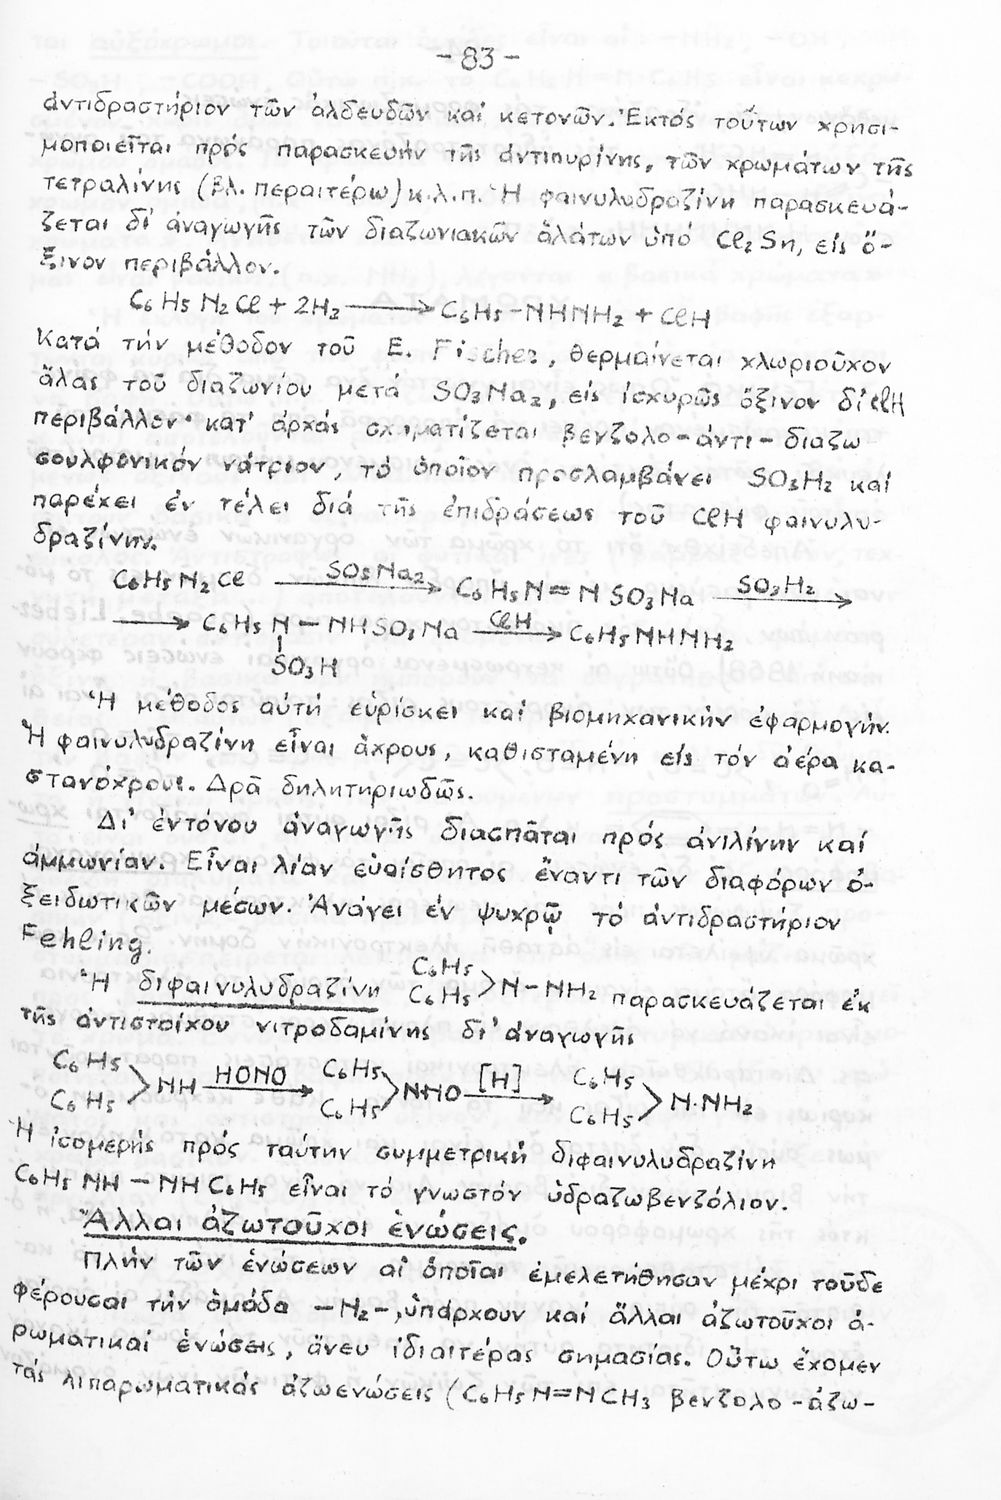 - 83 -
ἀντιδραστήριον τῶν ἀλδευδῶν καί κετονῶν. Ἐκτός τούτων χρησι-
μοποιεῖται πρός παρασκευήν τῆς ἀντιπυρίνης, τῶν χρωμάτων τῆς
τετραλίνης (βλ. περαιτέρω) κ.λ.π. Ἡ φαινυλυδραζίνη παρασκευά-
ζεται δι' ἀναγωγῆς τῶν διαζωνιακῶν ἁλάτων ὑπό Cl₂Sn, εἰς ὄ-
ξινον περιβάλλον.
C₆H₅N₂Cl + 2H₂ ⟶ C₆H₅-NHNH₂ + ClH
Κατά τήν μέθοδον τοῦ E. Fischer, θερμαίνεται χλωριοῦχον
ἅλας τοῦ διαζωνίου μετά SO₃Na₂, εἰς ἰσχυρῶς ὄξινον δι' ClH
περιβάλλον· κατ' ἀρχάς σχηματίζεται βενζολο-ἀντι-διαζω
σουλφονικόν νάτριον, τό ὁποῖον προσλαμβάνει SO₃H₂ καί
παρέχει ἐν τέλει διά τῆς ἐπιδράσεως τοῦ ClH φαινυλυ-
δραζίνην.
C₆H₅N₂Cl —SO₃Na₂→ C₆H₅N=NSO₃Na —SO₃H₂→
⟶ C₆H₅N-NHSO₃Na —ClH→ C₆H₅NHNH₂
SO₃H
Ἡ μέθοδος αὐτή εὑρίσκει καί βιομηχανικήν ἐφαρμογήν.
Ἡ φαινυλυδραζίνη εἶναι ἄχρους, καθισταμένη εἰς τόν ἀέρα κα-
στανόχρους. Δρᾶ δηλητηριωδῶς.
Δι' ἐντόνου ἀναγωγῆς διασπᾶται πρός ἀνιλίνην καί
ἀμμωνίαν. Εἶναι λίαν εὐαίσθητος ἔναντι τῶν διαφόρων ὀ-
ξειδωτικῶν μέσων. Ἀνάγει ἐν ψυχρῷ τό ἀντιδραστήριον
Fehling.
Ἡ διφαινυλυδραζίνη C₆H₅ C₆H₅ >N-NH₂ παρασκευάζεται ἐκ
τῆς ἀντιστοίχου νιτροδαμίνης δι' ἀναγωγῆς
C₆H₅ C₆H₅ >NH —HONO→ C₆H₅ C₆H₅ >NNO —[H]→ C₆H₅ C₆H₅ >N·NH₂
Ἡ ἰσομερής πρός ταύτην συμμετρική διφαινυλυδραζίνη
C₆H₅NH-NHC₆H₅ εἶναι τό γνωστόν ὑδραζωβενζόλιον.
Ἄλλαι ἀζωτοῦχοι ἑνώσεις.
Πλήν τῶν ἑνώσεων αἱ ὁποῖαι ἐμελετήθησαν μέχρι τοῦδε
φέρουσαι τήν ὁμάδα -N₂-, ὑπάρχουν καί ἄλλαι ἀζωτοῦχοι ἀ-
ρωματικαί ἑνώσεις, ἄνευ ἰδιαιτέρας σημασίας. Οὕτω ἔχομεν
τάς λιπαρωματικάς ἀζωενώσεις (C₆H₅N=NCH₃ βενζολο-ἀζω-